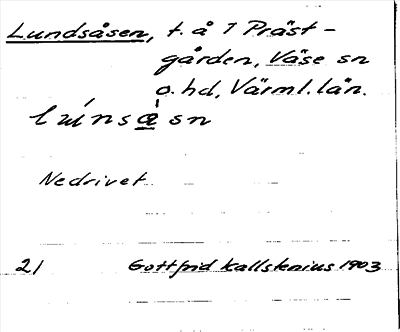 Lundsåsen, t. å 1 Präst-
gården, Väse sn
o. hd, Värml. län.
Nedrivet
21 Gottfrid Kallstenius 1903